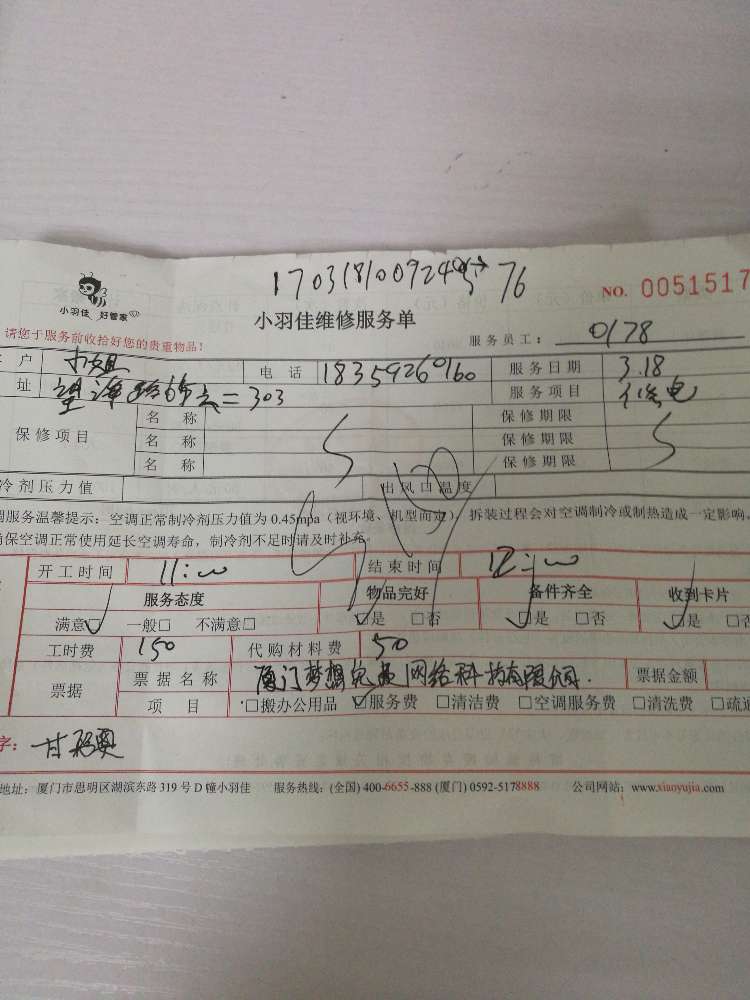 小羽佳 好管家
NO. 0051517
小羽佳维修服务单
请您于服务前收拾好您的贵重物品！
服务员工： 0178
户 小姐 电话 18359260160 服务日期 3.18
址 303 服务项目 供电
保修项目 名称 保修期限
名称 保修期限
名称 保修期限
冷剂压力值 出风口温度
服务温馨提示：空调正常制冷剂压力值为 0.45mpa（视环境、机型而定），拆装过程会对空调制冷或制热造成一定影响，
保空调正常使用延长空调寿命，制冷剂不足时请及时补充。
开工时间 11:00 结束时间 12:00
服务态度 物品完好 备件齐全 收到卡片
满意☑ 一般□ 不满意□ ☑是 □否 ☑是 □否 ☑是 □
工时费 150 代购材料费 50
票据 票据名称 厦门梦想 网络科技有限公司. 票据金额
项目 □搬办公用品 ☑服务费 □清洁费 □空调服务费 □清洗费 □疏通
字：甘
地址：厦门市思明区湖滨东路 319 号 D 幢小羽佳 服务热线：(全国) 400-6655-888 (厦门) 0592-5178888 公司网站：www.xiaoyujia.com